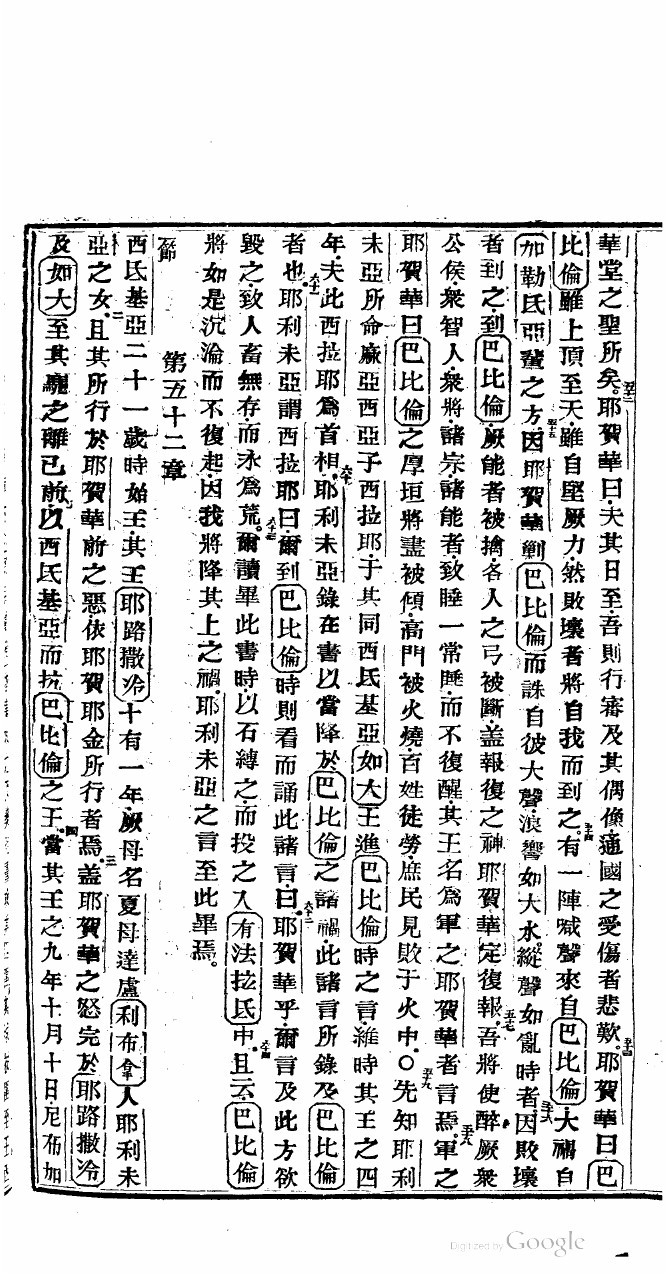 華堂之聖所矣五十二耶賀華曰夫其日至吾則行審及其偶像通國之受傷者悲歎五十三耶賀華曰巴
比倫雖上頂至天雖自堅厥力然敗壞者將自我而到之五十四有一陣喊聲來自巴比倫大禍自
加勒氐亞輩之方五十五因耶賀華剿巴比倫而誅自彼大聲浪響如大水縱聲如亂時者五十六因敗壞
者到之到巴比倫厥能者被擒各人之弓被斷蓋報復之神耶賀華定復報五十七吾將使醉厥衆
公侯衆智人衆將諸宗諸能者致睡一常睡而不復醒其王名爲軍之耶賀華者言焉五十八軍之
耶賀華曰巴比倫之厚垣將盡被傾高門被火燒百姓徒勞庶民見敗于火中○五十九先知耶利
未亞所命廠亞西亞子西拉耶于其同西氐基亞如大王進巴比倫時之言維時其王之四
年夫此西拉耶爲首相六十耶利未亞錄在書以當降於巴比倫之諸禍此諸言所錄及巴比倫
者也六十一耶利未亞謂西拉耶曰爾到巴比倫時則看而誦此諸言六十二曰耶賀華乎爾言及此方欲
毀之致人畜無存而永爲荒六十三爾讀畢此書時以石縛之而投之入有法拉氐中六十四且云巴比倫
將如是沉淪而不復起因我將降其上之禍耶利未亞之言至此畢焉
第五十二章
節
西氐基亞二十一歲時始王其王耶路撒冷十有一年厥母名夏母達盧利布拿人耶利未
亞之女二且其所行於耶賀華前之惡依耶賀耶金所行者焉三蓋耶賀華之怒完於耶路撒冷
及如大至其驅之離己前以西氐基亞而抗巴比倫之王四當其王之九年十月十日尼布加
Digitized by Google